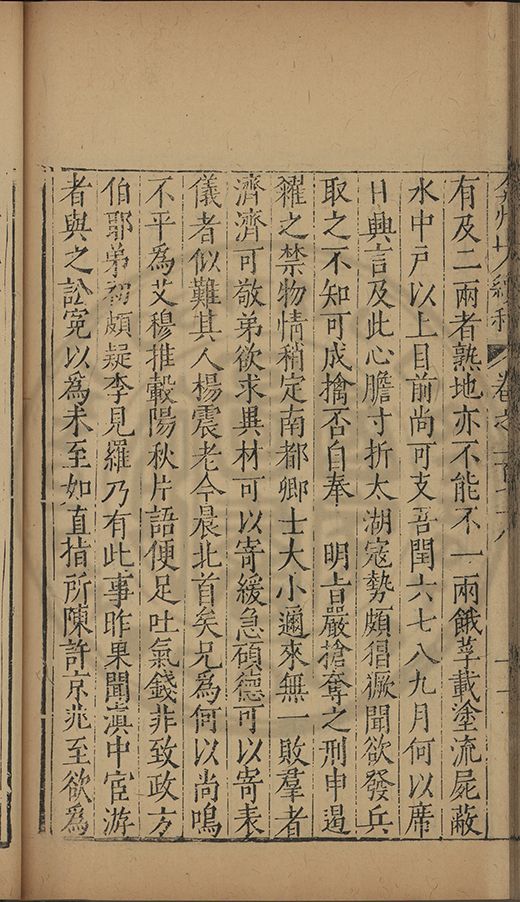 弇州山人續稿 卷之一百七十八
有及二兩者熟地亦不能不一兩餓莩載塗流屍蔽
水中戸以上目前尚可支吾閏六七八九月何以席
日興言及此心膽寸折太湖寇勢頗猖獗聞欲發兵
取之不知可成擒否自奉 明旨嚴搶奪之刑申遏
糴之禁物情稍定南都卿士大小邇來無一敗羣者
濟濟可敬弟欲求異材可以寄緩急碩德可以寄表
儀者似難其人楊震老今晨北首矣兄爲何以尚鳴
不平爲艾穆推轂陽秋片語便足吐氣錢非致政方
伯耶弟初頗疑李見羅乃有此事昨果聞滇中宦游
者與之訟寃以爲未至如直指所陳許京兆至欲爲